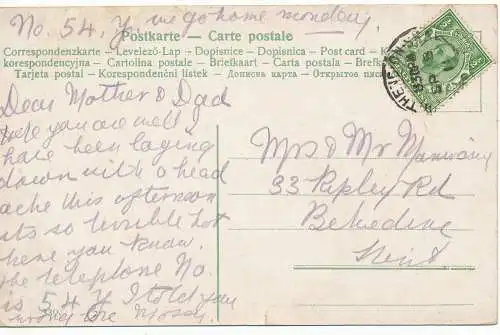 No. 54. If we go home monday.
Postkarte — Carte postale
Correspondenzkarte — Levelező-Lap — Dopisnice — Dopisnica — Post card —
korespondencyjna — Cartolina postale — Briefkaart — Brevkort —
Tarjeta postal — Korespondenční lístek — Дописна карта — Открытое
Dear Mother & Dad
hope you are well I
have been laying
down with a head
ache this afternoon
its so terrible hot
here you know.
the telephone No.
is 54 If I told you
wrong
Mrs & Mr
33 Ripley Rd
Belvedere
Kent